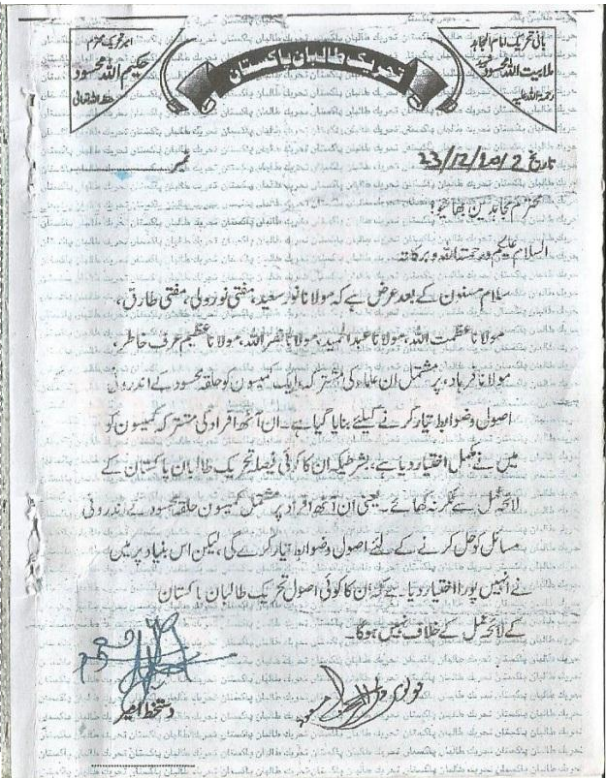 بانی تحریک امام المجاہد
ملا بیت اللہ محسود
رحمۃ اللہ علیہ
تحریک طالبان پاکستان
امیر تحریک محترم
حکیم اللہ محسود
حفظہ اللہ تعالی
تاریخ 23/12/2012
نمبر
محترم مجاہدین بھائیو!
السلام علیکم ورحمتہ اللہ وبرکاتہ
سلام مسنون کے بعد عرض ہے کہ مولانا نور سعید، مفتی نور ولی، مفتی طارق،
مولانا عظمت اللہ، مولانا عبد الحمید، مولانا نصر اللہ، مولانا عظیم عرف خاطر،
مولانا فرہاد، پر مشتمل ان علماء کی مشترکہ ایک کمیسون کو حلقہ محسود کے اندرونی
اصول وضوابط تیار کرنے کیلئے بنایا گیا ہے۔ ان آٹھ افراد کی مشترکہ کمیسون کو
میں نے مکمل اختیار دیا ہے، بشرطیکہ ان کا کوئی فیصلہ تحریک طالبان پاکستان کے
لائحہ عمل سے ٹکر نہ کھائے۔ یعنی ان آٹھ افراد پر مشتمل کمیسون حلقہ محسود کے اندرونی
مسائل کو حل کرنے کے لئے اصول وضوابط تیار کرے گی، لیکن اس بنیاد پر میں
نے انہیں پورا اختیار دیا ہے کہ ان کا کوئی اصول تحریک طالبان پاکستان
کے لائحہ عمل کے خلاف نہیں ہوگا۔
دستخط امیر